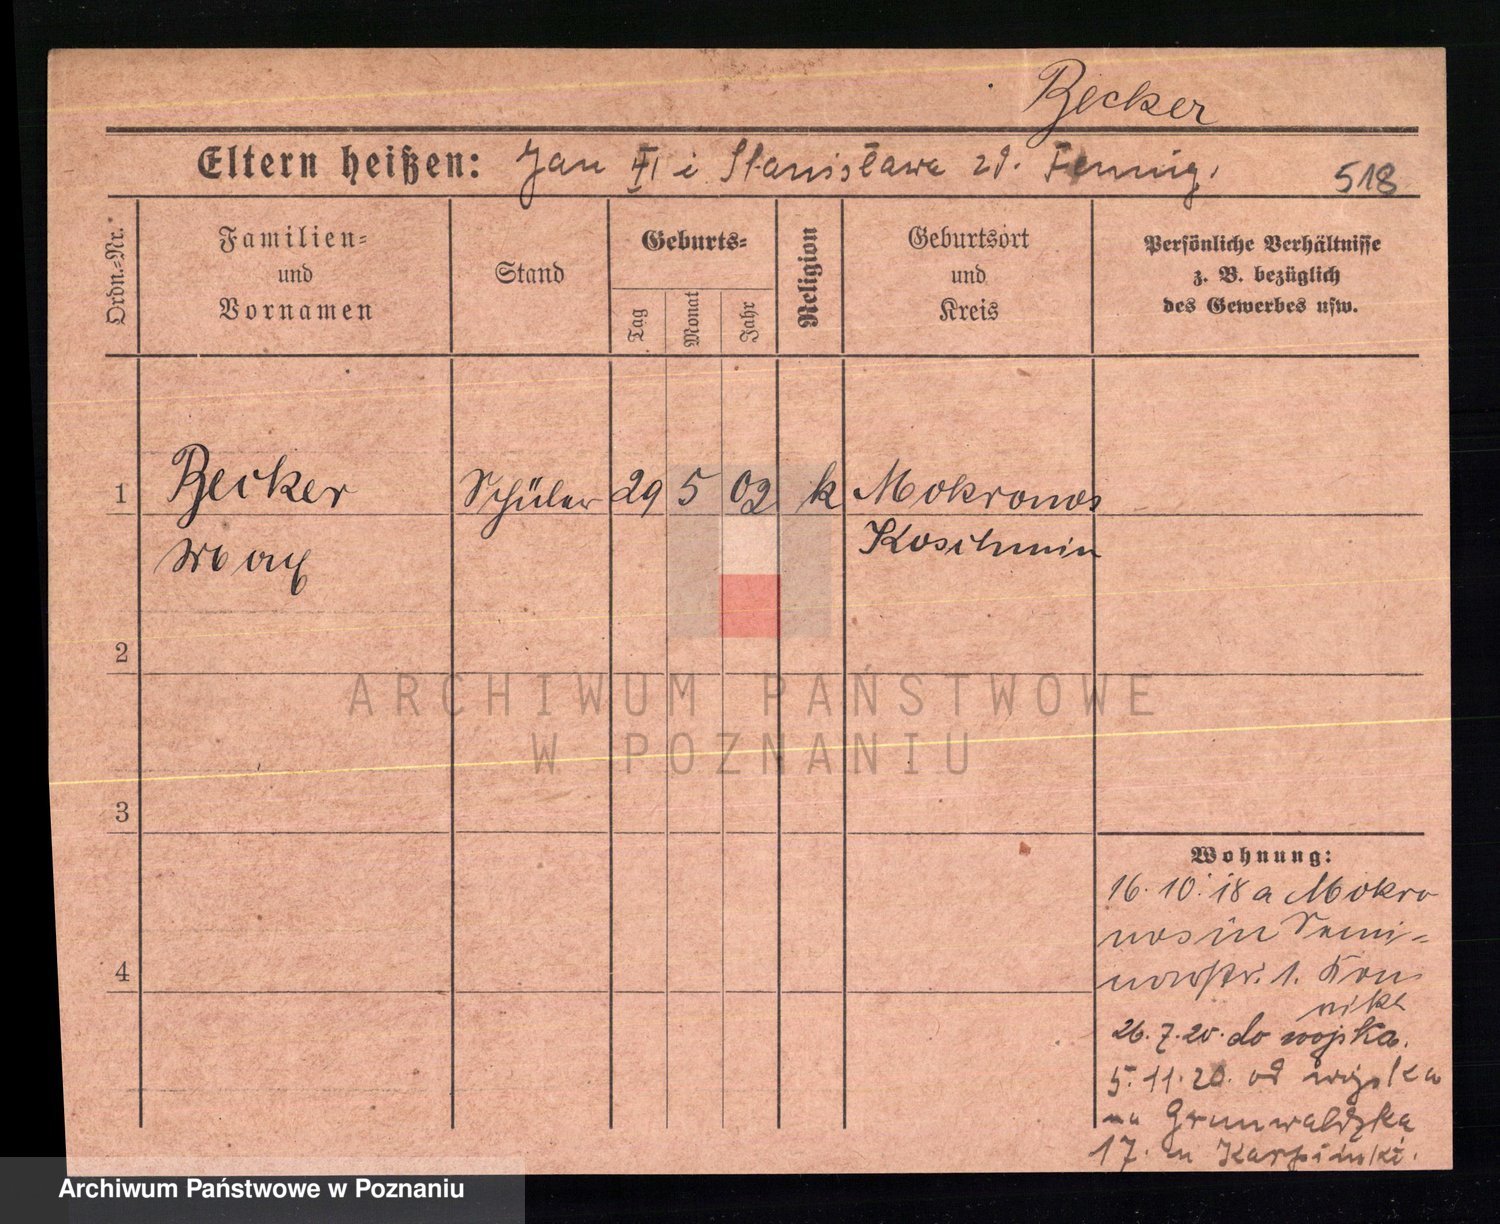 Becker
Eltern heißen: Jan i Stanisława zd. Fennig.
518
Ordn.-Nr.
Familien-
und
Vornamen
Stand
Geburts-
Tag
Monat
Jahr
Religion
Geburtsort
und
Kreis
Persönliche Verhältnisse
z. B. bezüglich
des Gewerbes usw.
1 Becker Schüler 29 5 02 k Mokronos
Max Koschmin
2
3
4
Wohnung:
16.10.18 a Mokro
nos in Semi-
narstr. 1.
26.7.20. do wojska.
5.11.20. od wojska
na Grunwaldzka
17. m Karpiński.
ARCHIWUM PAŃSTWOWE
W POZNANIU
Archiwum Państwowe w Poznaniu